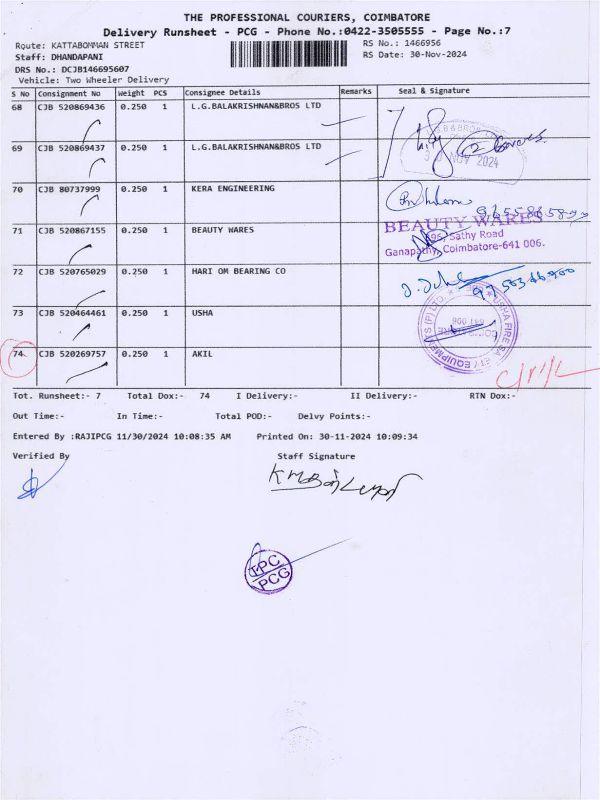 THE PROFESSIONAL COURIERS, COIMBATORE
Delivery Runsheet - PCG - Phone No.:0422-3505555 - Page No.:7
Route: KATTABOMMAN STREET RS No.: 1466956
Staff: DHANDAPANI RS Date: 30-Nov-2024
DRS No.: DCJB146695607
Vehicle: Two Wheeler Delivery
S No Consignment No Weight PCS Consignee Details Remarks Seal & Signature
68 CJB 520869436 0.250 1 L.G.BALAKRISHNAN&BROS LTD
69 CJB 520869437 0.250 1 L.G.BALAKRISHNAN&BROS LTD
NOV 2024
70 CJB 80737999 0.250 1 KERA ENGINEERING
71 CJB 520867155 0.250 1 BEAUTY WARES
BEAUTY WARES
Sathy Road
Ganapathy, Coimbatore-641 006.
72 CJB 520765029 0.250 1 HARI OM BEARING CO
73 CJB 520464461 0.250 1 USHA
USHA FIRE SAFETY EQUIPMENTS (P) LTD.
74 CJB 520269757 0.250 1 AKIL
Tot. Runsheet:- 7 Total Dox:- 74 I Delivery:- II Delivery:- RTN Dox:-
Out Time:- In Time:- Total POD:- Delvy Points:-
Entered By :RAJIPCG 11/30/2024 10:08:35 AM Printed On: 30-11-2024 10:09:34
Verified By Staff Signature
TPC
PCG